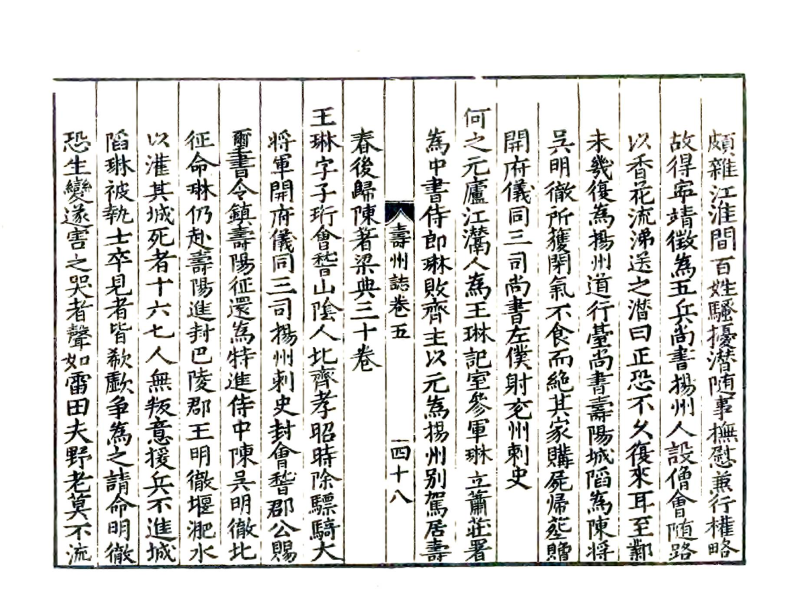 頗雜江淮間百姓騷擾潜随事撫慰兼行權略
故得寧靖徵為五兵尚書揚州人設僧會随路
以香花流涕送之潜曰正恐不久復來耳至鄴
未幾復為揚州道行臺尚書壽陽城䧟為陳將
吳明徹所獲閉氣不食而絶其家購屍帰塟贈
開府儀同三司尚書左僕射兖州刺史
何之元廬江灊人為王琳記室參軍琳立蕭莊署
為中書侍郎琳敗齊主以元為揚州别駕居壽
壽州誌卷五
四十八
春後歸陳著梁典三十卷
王琳字子珩會稽山陰人北齊孝昭時除驃騎大
將軍開府儀同三司揚州刺史封會稽郡公賜
璽書令鎮壽陽征還為特進侍中陳吳明徹北
征命琳仍赴壽陽進封巴陵郡王明徹堰淝水
以灌其城死者十六七人無叛意援兵不進城
䧟琳被執士卒見者皆欷歔争為之請命明徹
恐生變遂害之哭者聲如雷田夫野老莫不流